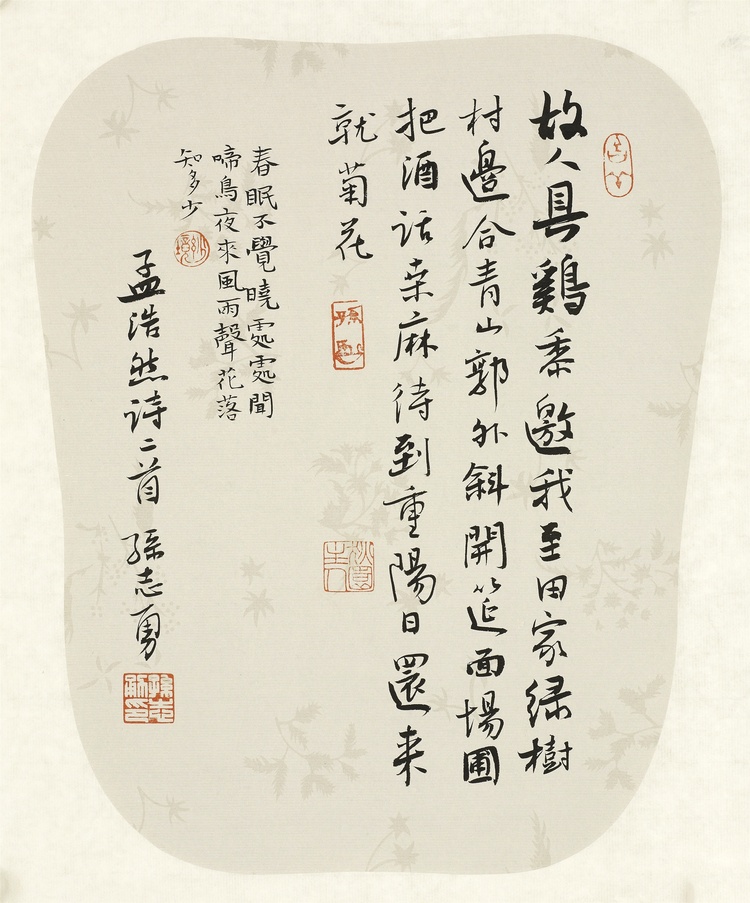 故人具鷄黍邀我至田家緑樹
村邊合青山郭外斜開筵面場圃
把酒話桒麻待到重陽日還来
就菊花
春眠不覺曉處處聞
啼鳥夜來風雨聲花落
知多少
孟浩然詩二首 孫志勇
孫志勇印